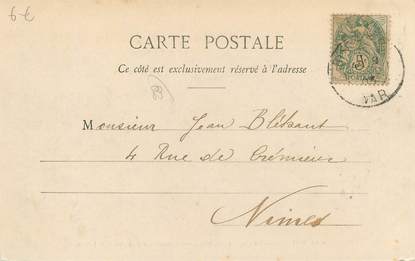 6 €
CARTE POSTALE
Ce côté est exclusivement réservé à l'adresse
Monsieur Jean
4 Rue de Crémieux
Nimes
VAR